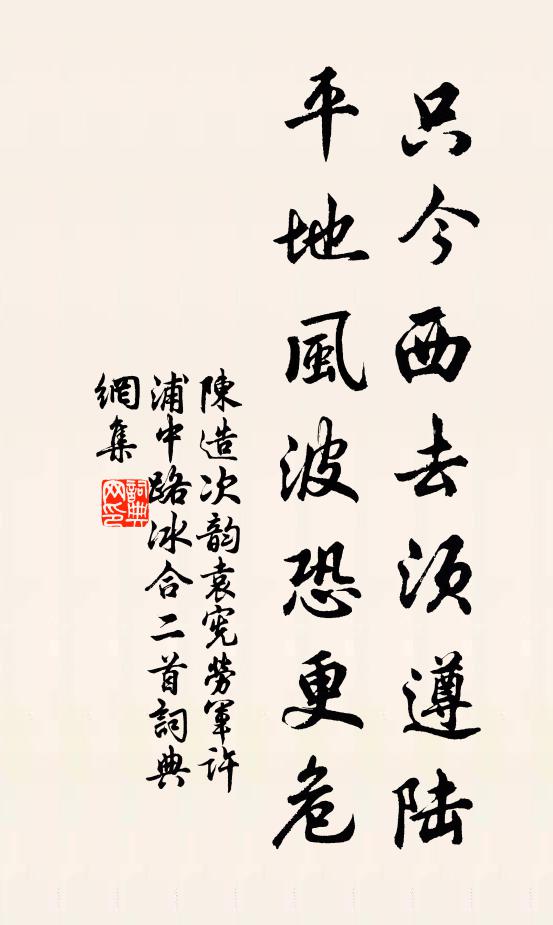 只今西去须遵陆
平地風波恐更危
陳造次韵袁宪劳軍许
浦中路冰合二首詞典
網集
詞典
网印